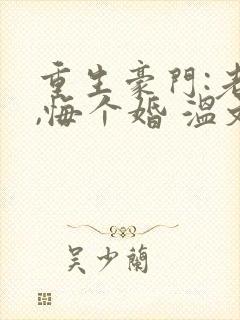 重生豪门:老
,悔个婚 温文
吴少兰